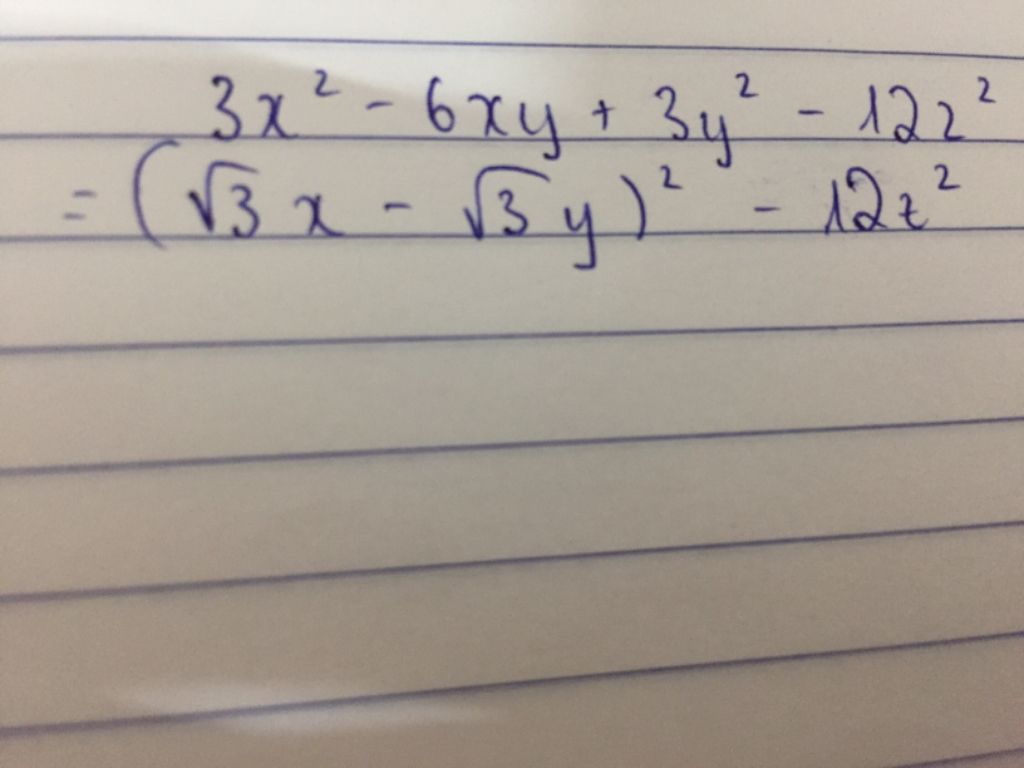 3x² - 6xy + 3y² - 12z²
= (√3 x - √3 y)² - 12z²